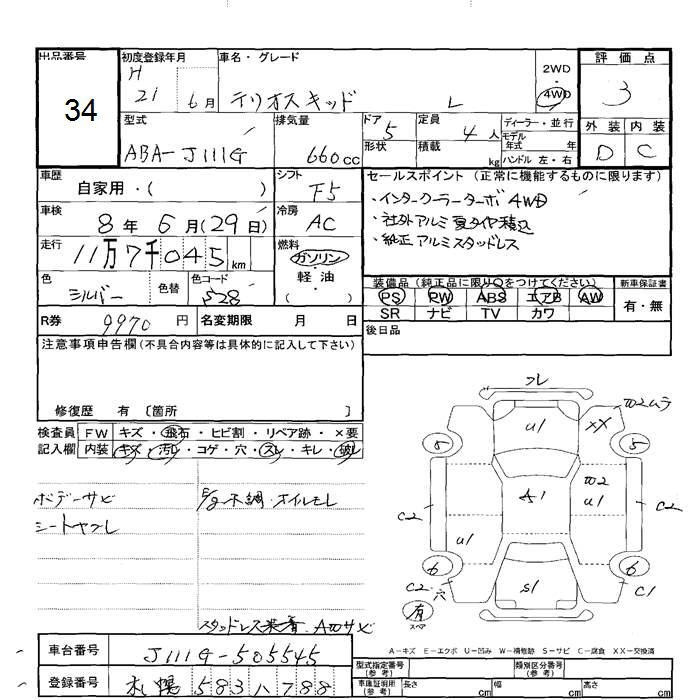 出品番号 初度登録年月 車名・グレード 評価点
34 H 21 6月 テリオスキッド L 2WD 4WD 3
型式 排気量 ドア 定員 ディーラー・並行 外装 内装
ABA-J111G 660cc 5 4人 モデル年式 年式
形状 積載 kg ハンドル 左・右 D C
車歴 シフト セールスポイント(正常に機能するものに限ります)
自家用・( ) F5
・インタークーラーターボ 4WD
車検 8年6月(29日) 冷房 AC
・社外アルミ夏タイヤ積込
走行 11万7千045km 燃料 ガソリン・軽油・( )
・純正アルミスタッドレス
色 シルバー 色替 色コード S28
装備品(純正品に限り○をつけてください) 新車保証書
PS PW ABS エアB AW 有・無
SR ナビ TV カワ
R券 9970円 名変期限 月 日
後日品
注意事項申告欄(不具合内容等は具体的に記入して下さい)
修復歴 有 〔箇所 〕
検査員 FW キズ・飛石・ヒビ割・リペア跡・×要
記入欄 内装 キズ・汚レ・コゲ・穴・スレ・キレ・破レ
ボデーサビ
シートヤブレ
E/g不調・オイルモレ
スタッドレス装着・A
フレ
W2ムラ
U1 XX
5 5
A1 W2 U1
C2 C2
U1
6 6
C2 穴 S1 C1
有
スペア
A-キズ E-エクボ U-凹み W-補修跡 S-サビ C-腐食 XX-交換済
車台番号 J111G-505545
型式指定番号(参考) 類別区分番号(参考)
登録番号 札幌 583 ハ 788
車庫証明用(参考) 長さ cm 幅 cm 高さ cm